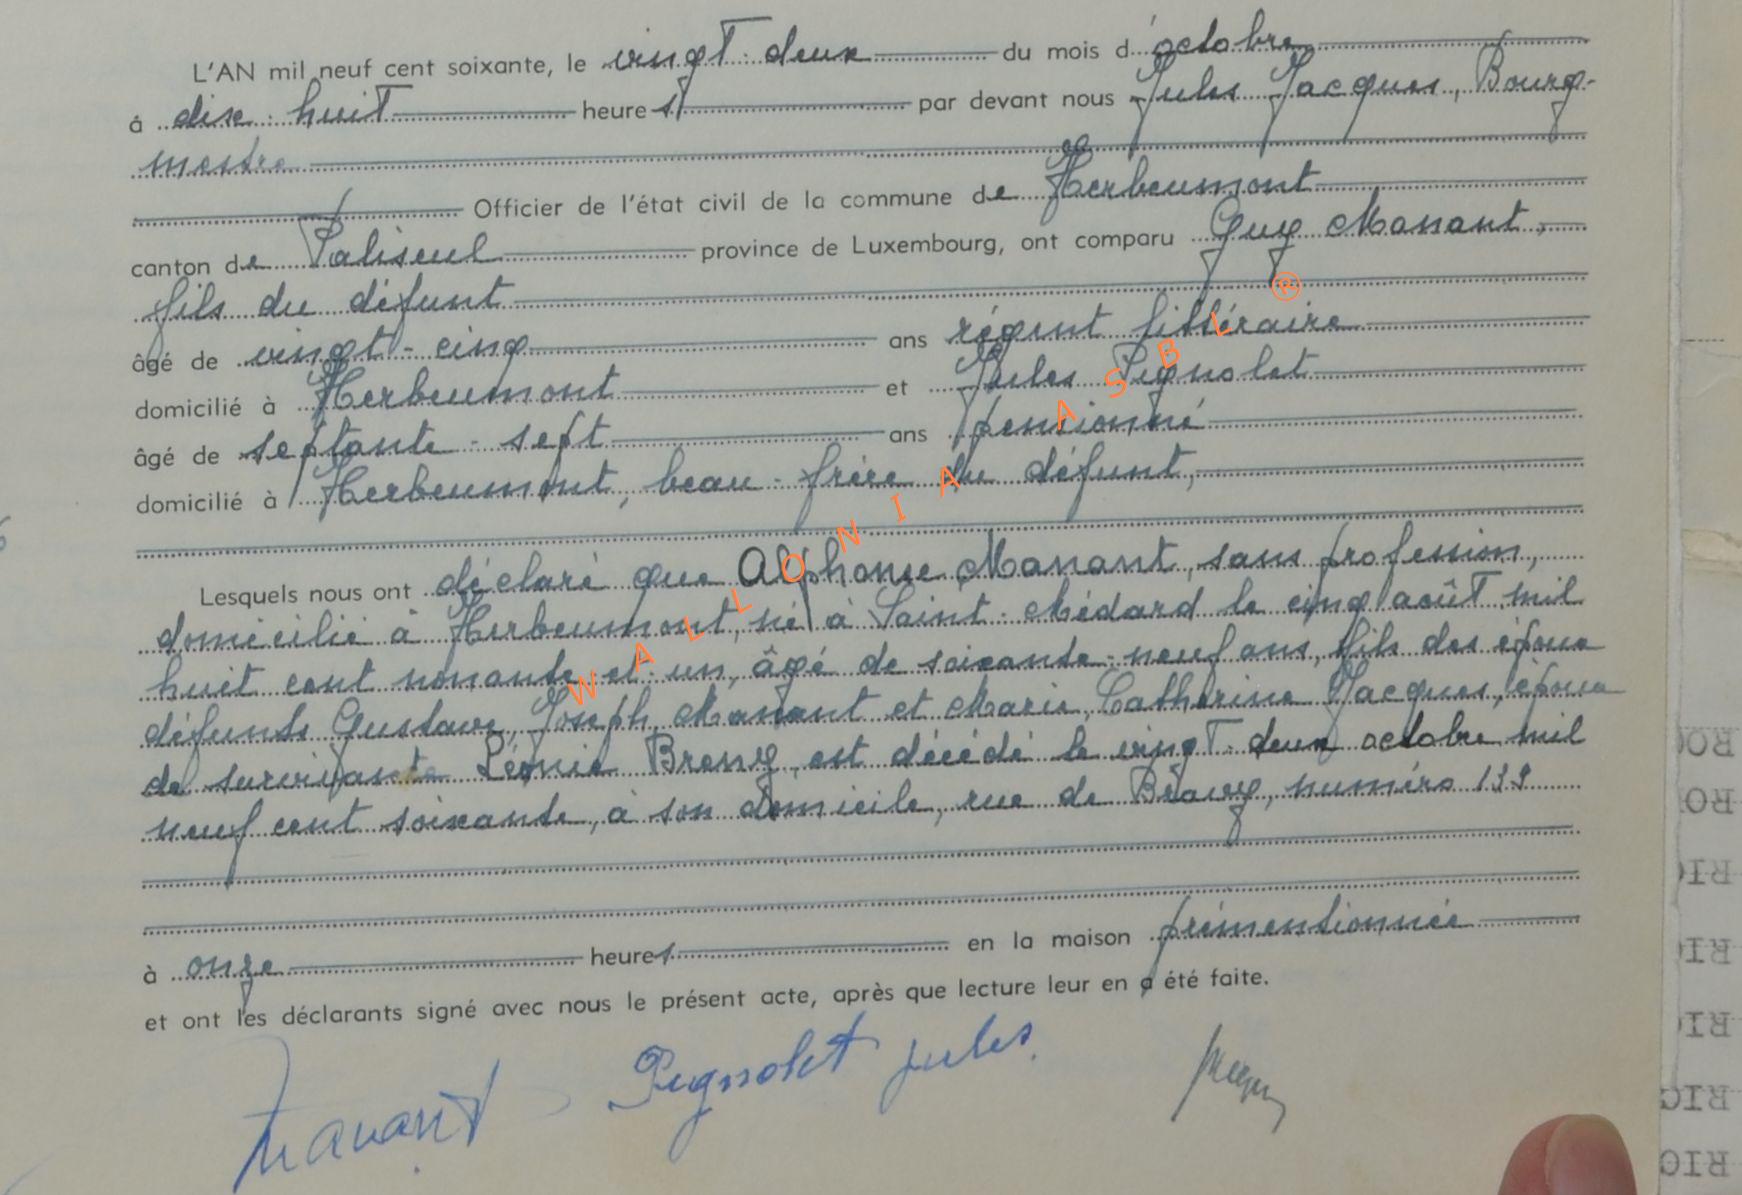 L'AN mil neuf cent soixante, le vingt-deux du mois d'octobre
à dix-huit heures par devant nous Jules Jacques, Bourg-
mestre
Officier de l'état civil de la commune de Herbeumont
canton de Paliseul province de Luxembourg, ont comparu Guy Manant,
fils du défunt
âgé de vingt-cinq ans régent littéraire
domicilié à Herbeumont et Jules Pignolet
âgé de septante-sept ans pensionné
domicilié à Herbeumont, beau-frère du défunt,
Lesquels nous ont déclaré que Alphonse Manant, sans profession,
domicilié à Herbeumont, né à Saint-Médard le cinq août mil
huit cent nonante et un, âgé de soixante-neuf ans, fils des époux
défunts Gustave, Joseph Manant et Marie, Catherine Jacques, époux
de survivante Léonie Breny, est décédé le vingt-deux octobre mil
neuf cent soixante, à son domicile, rue de numéro 139
à onze heures en la maison prémentionnée
et ont les déclarants signé avec nous le présent acte, après que lecture leur en a été faite.
Manant Pignolet Jules.
WALLONIA ASBL ®